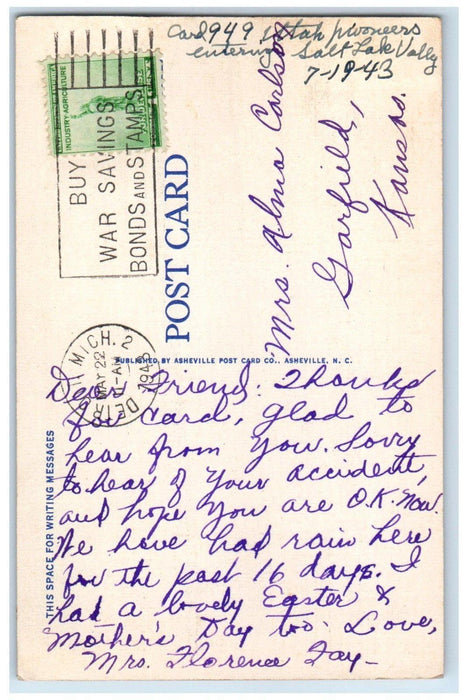 Card 949 Utah pioneers
entering Salt Lake Vally
7-19-43
INDUSTRY AGRICULTURE
BUY
WAR SAVINGS
BONDS AND STAMPS
POST CARD
Mrs. Alma Carlson
Garfield,
Kansas.
DETROIT, MICH. 2
MAY 22
11-AM
1943
PUBLISHED BY ASHEVILLE POST CARD CO., ASHEVILLE, N. C.
THIS SPACE FOR WRITING MESSAGES
Dear Friend: Thanks
for card, glad to
hear from you. Sorry
to hear of your accident,
and hope you are O.K. now.
We have had rain here
for the past 16 days. I
had a lovely Easter &
Mother's Day too. Love,
Mrs. Florence Fay-